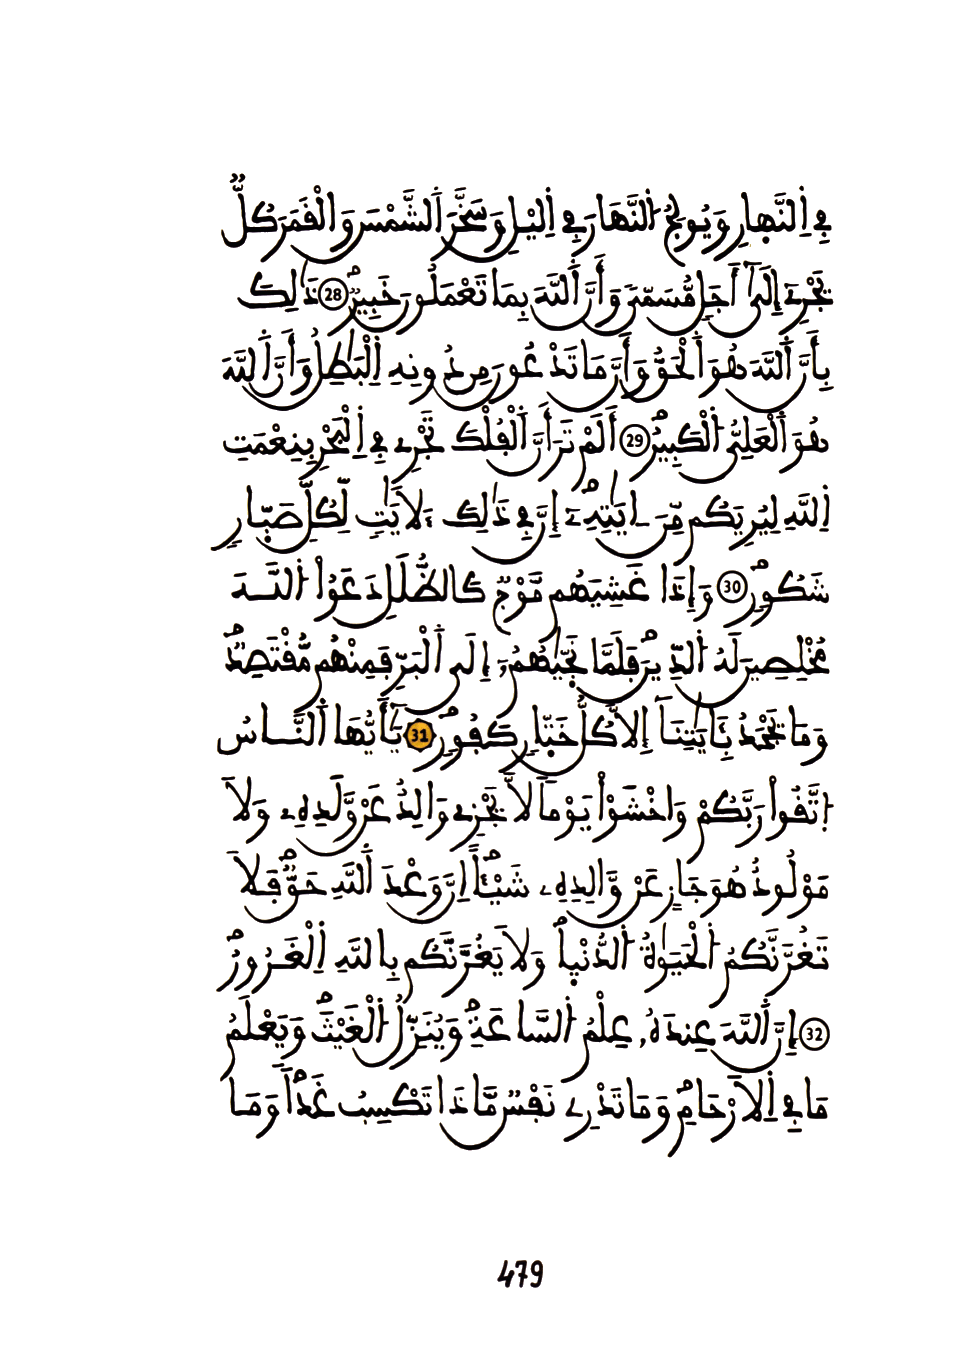 فِي اِ۬لنَّه۪ارِ وَيُولِجُ اُ۬لنَّهَارَ فِي اِ۬ليْلِ وَسَخَّرَ اَ۬لشَّمْسَ وَالْقَمَرَ كُلّٞ
تَجْرِےٓ إِلَىٰٓ أَجَلٖ مُّسَمّيٗ وَأَنَّ اَ۬للَّهَ بِمَا تَعْمَلُونَ خَبِيرٞ 28 ذَٰلِكَ
بِأَنَّ اَ۬للَّهَ هُوَ اَ۬لْحَقُّ وَأَنَّ مَا تَدْعُونَ مِن دُونِهِ اِ۬لْبَٰطِلُ وَأَنَّ اَ۬للَّهَ
هُوَ اَ۬لْعَلِيُّ اُ۬لْكَبِيرُ 29 أَلَمْ تَرَ أَنَّ اَ۬لْفُلْكَ تَجْرِے فِي اِ۬لْبَحْرِ بِنِعْمَتِ
اِ۬للَّهِ لِيُرِيَكُم مِّنَ اٰيَٰتِهِۦٓ إِنَّ فِي ذَٰلِكَ ءَلَايَٰتٖ لِّكُلِّ صَبّ۪ارٖ
شَكُورٖ 30 وَإِذَا غَشِيَهُم مَّوْجٞ كَالظُّلَلِ دَعَوُاْ اُ۬للَّهَ
مُخْلِصِينَ لَهُ اُ۬لدِّينَ فَلَمَّا نَجّ۪يٰهُمُۥٓ إِلَى اَ۬لْبَرِّ فَمِنْهُم مُّقْتَصِدٞ
وَمَا يَجْحَدُ بِـَٔايَٰتِنَآ إِلَّا كُلُّ خَتّ۪ارٖ كَفُورٖ 31 يَٰٓأَيُّهَا اَ۬لنَّاسُ
اُ۪تَّقُواْ رَبَّكُمْ وَاخْشَوْاْ يَوْماٗ لَّا يَجْزِے وَالِدٌ عَنْ وَّلَدِهِۦ وَلَا
مَوْلُودٌ هُوَ جَازٍ عَنْ وَّالِدِهِۦ شَيْـٔاًۖ اِنَّ وَعْدَ اَ۬للَّهِ حَقّٞۖ فَلَا
تَغُرَّنَّكُمُ اُ۬لْحَيَوٰةُ اُ۬لدُّنْي۪اۖ وَلَا يَغُرَّنَّكُم بِاللَّهِ اِ۬لْغَرُورُۖ
32 إِنَّ اَ۬للَّهَ عِندَهُۥ عِلْمُ اُ۬لسَّاعَةِۖ وَيُنَزِّلُ اُ۬لْغَيْثَۖ وَيَعْلَمُ
مَا فِي اِ۬لَارْحَامِۖ وَمَا تَدْرِے نَفْسٞ مَّاذَا تَكْسِبُ غَداٗۖ وَمَا
479